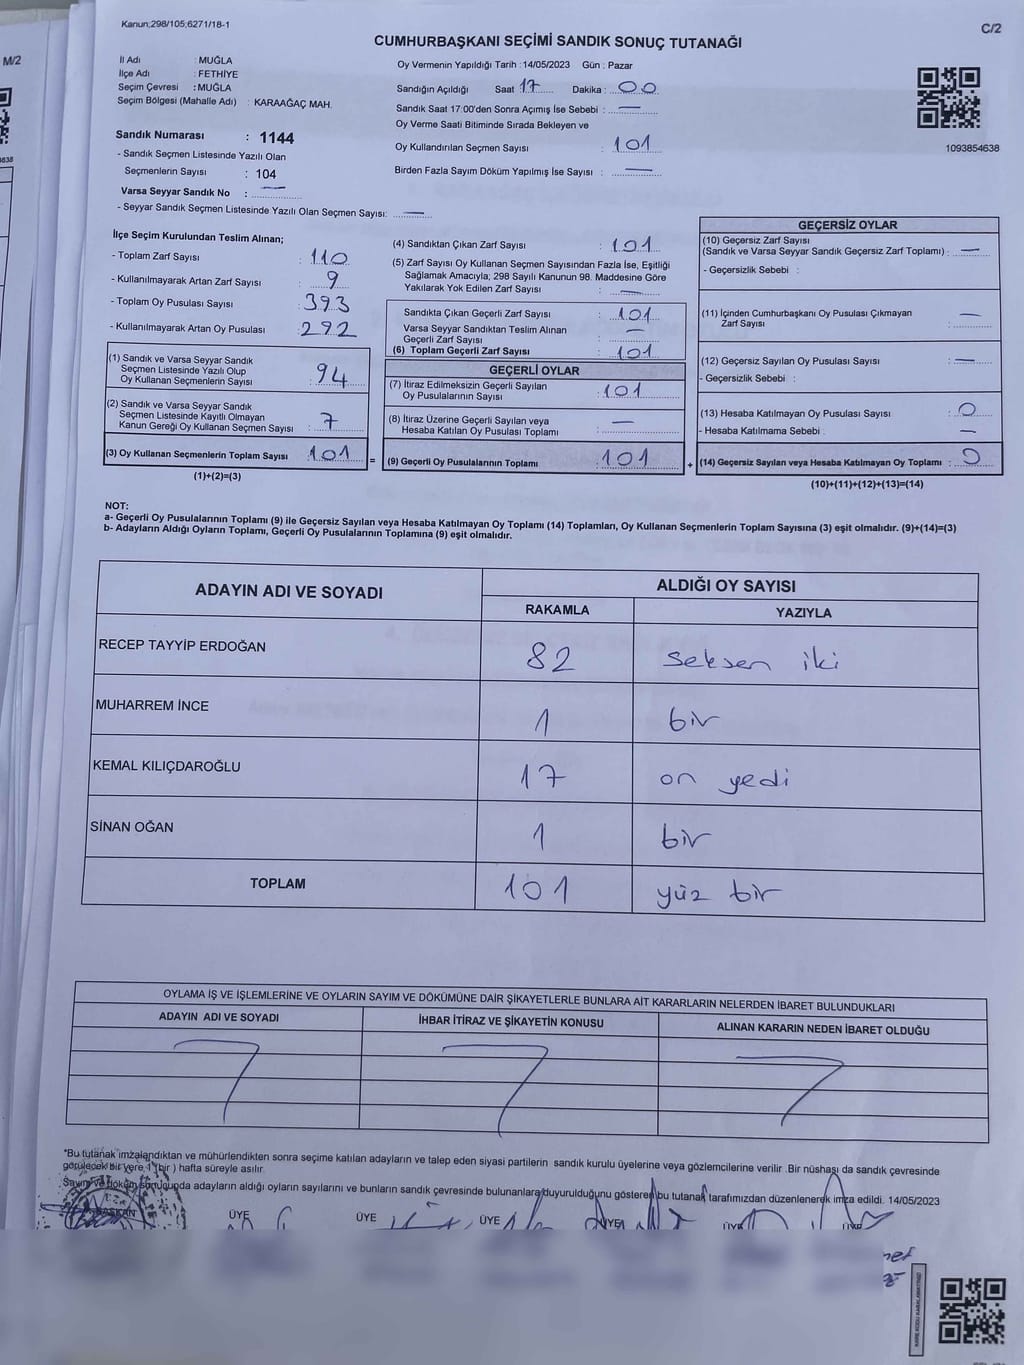 Kanun;298/105;6271/18-1
C/2
M/2
CUMHURBAŞKANI SEÇİMİ SANDIK SONUÇ TUTANAĞI
İl Adı : MUĞLA
İlçe Adı : FETHİYE
Seçim Çevresi : MUĞLA
Seçim Bölgesi (Mahalle Adı) : KARAAĞAÇ MAH.
Sandık Numarası : 1144
- Sandık Seçmen Listesinde Yazılı Olan
Seçmenlerin Sayısı : 104
Varsa Seyyar Sandık No : —
- Seyyar Sandık Seçmen Listesinde Yazılı Olan Seçmen Sayısı: —
Oy Vermenin Yapıldığı Tarih : 14/05/2023 Gün : Pazar
Sandığın Açıldığı Saat 17 Dakika : 00
Sandık Saat 17:00'den Sonra Açımış İse Sebebi : —
Oy Verme Saati Bitiminde Sırada Bekleyen ve
Oy Kullandırılan Seçmen Sayısı : 101
Birden Fazla Sayım Döküm Yapılmış İse Sayısı : —
1093854638
İlçe Seçim Kurulundan Teslim Alınan;
- Toplam Zarf Sayısı : 110
- Kullanılmayarak Artan Zarf Sayısı : 9
- Toplam Oy Pusulası Sayısı : 393
- Kullanılmayarak Artan Oy Pusulası : 292
(1) Sandık ve Varsa Seyyar Sandık
Seçmen Listesinde Yazılı Olup
Oy Kullanan Seçmenlerin Sayısı : 94
(2) Sandık ve Varsa Seyyar Sandık
Seçmen Listesinde Kayıtlı Olmayan
Kanun Gereği Oy Kullanan Seçmen Sayısı : 7
(3) Oy Kullanan Seçmenlerin Toplam Sayısı : 101
(1)+(2)=(3)
(4) Sandıktan Çıkan Zarf Sayısı : 101
(5) Zarf Sayısı Oy Kullanan Seçmen Sayısından Fazla İse, Eşitliği
Sağlamak Amacıyla; 298 Sayılı Kanunun 98. Maddesine Göre
Yakılarak Yok Edilen Zarf Sayısı : —
Sandıkta Çıkan Geçerli Zarf Sayısı : 101
Varsa Seyyar Sandıktan Teslim Alınan
Geçerli Zarf Sayısı : —
(6) Toplam Geçerli Zarf Sayısı : 101
GEÇERLİ OYLAR
(7) İtiraz Edilmeksizin Geçerli Sayılan
Oy Pusulalarının Sayısı : 101
(8) İtiraz Üzerine Geçerli Sayılan veya
Hesaba Katılan Oy Pusulası Toplamı : —
= (9) Geçerli Oy Pusulalarının Toplamı : 101
GEÇERSİZ OYLAR
(10) Geçersiz Zarf Sayısı
(Sandık ve Varsa Seyyar Sandık Geçersiz Zarf Toplamı) : —
- Geçersizlik Sebebi :
(11) İçinden Cumhurbaşkanı Oy Pusulası Çıkmayan
Zarf Sayısı : —
(12) Geçersiz Sayılan Oy Pusulası Sayısı : —
- Geçersizlik Sebebi :
(13) Hesaba Katılmayan Oy Pusulası Sayısı : 0
- Hesaba Katılmama Sebebi : —
+ (14) Geçersiz Sayılan veya Hesaba Katılmayan Oy Toplamı : 0
(10)+(11)+(12)+(13)=(14)
NOT:
a- Geçerli Oy Pusulalarının Toplamı (9) ile Geçersiz Sayılan veya Hesaba Katılmayan Oy Toplamı (14) Toplamları, Oy Kullanan Seçmenlerin Toplam Sayısına (3) eşit olmalıdır. (9)+(14)=(3)
b- Adayların Aldığı Oyların Toplamı, Geçerli Oy Pusulalarının Toplamına (9) eşit olmalıdır.
ADAYIN ADI VE SOYADI
ALDIĞI OY SAYISI
RAKAMLA YAZIYLA
RECEP TAYYİP ERDOĞAN 82 seksen iki
MUHARREM İNCE 1 bir
KEMAL KILIÇDAROĞLU 17 on yedi
SİNAN OĞAN 1 bir
TOPLAM 101 yüz bir
OYLAMA İŞ VE İŞLEMLERİNE VE OYLARIN SAYIM VE DÖKÜMÜNE DAİR ŞİKAYETLERLE BUNLARA AİT KARARLARIN NELERDEN İBARET BULUNDUKLARI
ADAYIN ADI VE SOYADI İHBAR İTİRAZ VE ŞİKAYETİN KONUSU ALINAN KARARIN NEDEN İBARET OLDUĞU
*Bu tutanak imzalandıktan ve mühürlendikten sonra seçime katılan adayların ve talep eden siyasi partilerin sandık kurulu üyelerine veya gözlemcilerine verilir .Bir nüshası da sandık çevresinde
görülecek bir yere 1 (bir ) hafta süreyle asılır.
Sayım ve döküm sonuçunda adayların aldığı oyların sayılarını ve bunların sandık çevresinde bulunanlara duyurulduğunu gösteren bu tutanak tarafımızdan düzenlenerek imza edildi. 14/05/2023
BAŞKAN ÜYE ÜYE ÜYE ÜYE ÜYE ÜYE